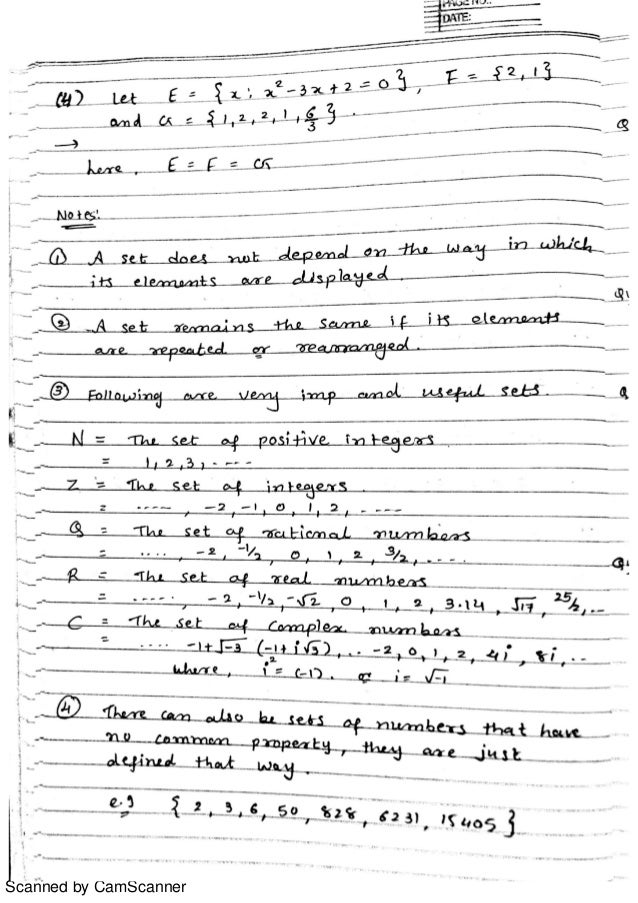 PAGE NO.:
DATE:
(4) Let E = {x: x²-3x+2=0}, F = {2,1}
and G = {1,2,2,1,6/3}.
→
here, E = F = G
Notes:
① A set does not depend on the way in which
its elements are displayed.
② A set remains the same if its elements
are repeated or rearranged.
③ Following are very imp and useful sets.
N = The set of positive integers
= 1,2,3,.---
Z = The set of integers.
= ----, -2,-1,0,1,2,----
Q = The set of rational numbers
= ...., -2,-1/2, 0, 1, 2, 3/2,....
R = The set of real numbers
= ....., -2,-1/2,-√2, 0, 1, 2, 3.14, √17, 25/2,..
C = The set of complex numbers
= .... -1+√-3 (-1+i√3),.. -2,0,1,2,4i,8i,..
where, i²=(-1). or i=√-1
④ There can also be sets of numbers that have
no common property, they are just
defined that way.
e.g {2,3,6,50,828,6231,15405}
Scanned by CamScanner